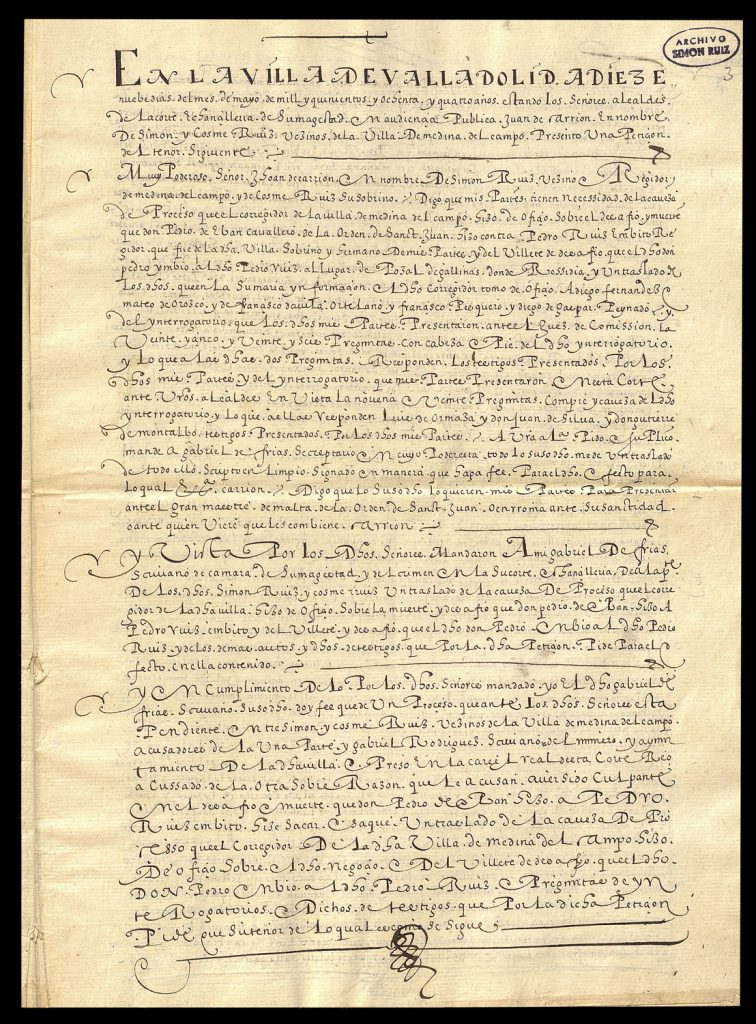 ARCHIVO
SIMON RUIZ
3
EN LA VILLA DE VALLADOLID. A DIEZ E
nuebe dias. del mes. de mayo. de mill. y quinientos. y ochenta. y quatro años. estando los. Señores. alcaldes.
de La corte. E chanalleria. de su magestad. En audiencia Publica. Juan de carrion. En nombre.
De simon. y Cosme Ruiz. vezinos. de la. Villa. De medina. del campo. Presento Una Petiçion.
del tenor. Siguiente
Muy Poderoso. Señor. Jhoan de carrion. En nombre. De Simon. Ruiz. vezino E Regidor
de medina. del campo. y de Cosme Ruiz Su sobrino. Digo que mis Partes. tienen necessidad. de La caveza
de Proceso que el corregidor de la villa. de medina del campo. hizo. de ofiçio. Sobre el desafio. y muerte
que don Pedro. de Eban cavallero. de la Orden. de Sanct Juan. hizo contra. Pedro. Ruiz Embito Re
gidor. que fue de la dha. Villa. Sobrino y hermano. De mis Partes. y del Villete de desafio. que el dho don
pedro ynbio. al dho Pedro Ruiz. al Lugar. de Pozal de gallinas. donde Ressidia. y Un traslado de
Los dhos. que en la Sumaria ynformaçion. El dho Corregidor tomo de Ofiçio. A diego fernandes
mateo de Orosco. y de françisco davila. Ortelano. y françisco Pesquero. y diego de gaspar. Reynado. y
del ynterrogatorio. que Los dhos mis Partes. Presentaron. ante el Juez. de Comission. La
Veinte. y çinco. y Veinte. y seis Preguntas. Con cabeza E Pie. del dho ynterrogatorio.
y Lo que a Las dhas. dos Preguntas. Responden. Los testigos. Presentados. Por Los
dhos mis Partes. y del ynterrogatorio. que mis Partes Presentaron En esta Corte.
ante Vros. alcaldes En Vista La novena E Veinte Preguntas. Con pie y caveza del dho
ynterrogatorio. y Lo que. a ellas Responden Luis de Ormaza. y don Juan. de Silva. y don gutierre
de montalbo. testigos Presentados. Por Los dhos mis Partes. A Vra al. Pido. E suplico.
mande a gabriel de frias. Secretario En cuyo Poder esta. todo lo susodho. me de Un traslado
de todo ello. Scripto en Limpio. Signado En manera. que haga fee. Para el dho. Efecto para.
lo qual carrion. Digo que lo susodho lo quieren. mis Partes. Para Presentar
ante el gran maestre. de malta. de la Orden. de Sanct Juan. O en rroma ante. Su Santidad.
O ante quien Viere que les combiene. carrion
y Vista Por los Dhos. Señores. Mandaron A mi gabriel De frias.
Scrivano de camara. de Su magestad. y del crimen En la Su corte. E chanalleria. De a la pe.
De Los. dhos. Simon. Ruiz. y cosme Ruiz Un traslado de La caveza De Proceso que el corre
gidor de La dha villa. hizo de Ofiçio. Sobre La muerte. y desafio que don pedro. de Eban. hizo A
Pedro Ruiz. embito y del Villete. y desafio. que el dho don Pedro. Enbio al dho Pedro
Ruiz. y de los. demas. autos. y dhos. de testigos. que Por La. dha Petiçion. Pide Para el
efecto. En ella contenido.
y En Cumplimiento De lo Por los. dhos. Señores mandado. yo El dho gabriel de
frias. Scrivano. Susodho. doy fee que de Un Proceso. que ante Los dhos. Señores esta
Pendiente. Entre Simon. y cosme Ruiz. vezinos de la Villa de medina del campo.
acusadores de la Una Parte. y gabriel Rodriguez. Scrivano. del numero. y ayun
tamiento De la dha villa. E. Preso En la carçel real desta Corte Reo
a Cussado. de La. Otra Sobre Razon. que Le acusan. aver sido Culpante
En el desafio E muerte. que don Pedro de Eban. hizo. a PEDRO.
Ruiz embito. hize Sacar. E saque. Un traslado de La caveza De Pro
cesso que el Corregidor De la dha Villa. de medina del campo hizo.
De ofiçio Sobre. El dho. Negoçio. E Del Villete de desafio. que el dho.
DON. Pedro Enbio. al dho. Pedro Ruiz. E Preguntas de yn
te Rogatorios. E Dichos de testigos. que Por La dicha Petiçion
Pide que Su tenor de Lo qual es como Se Sigue